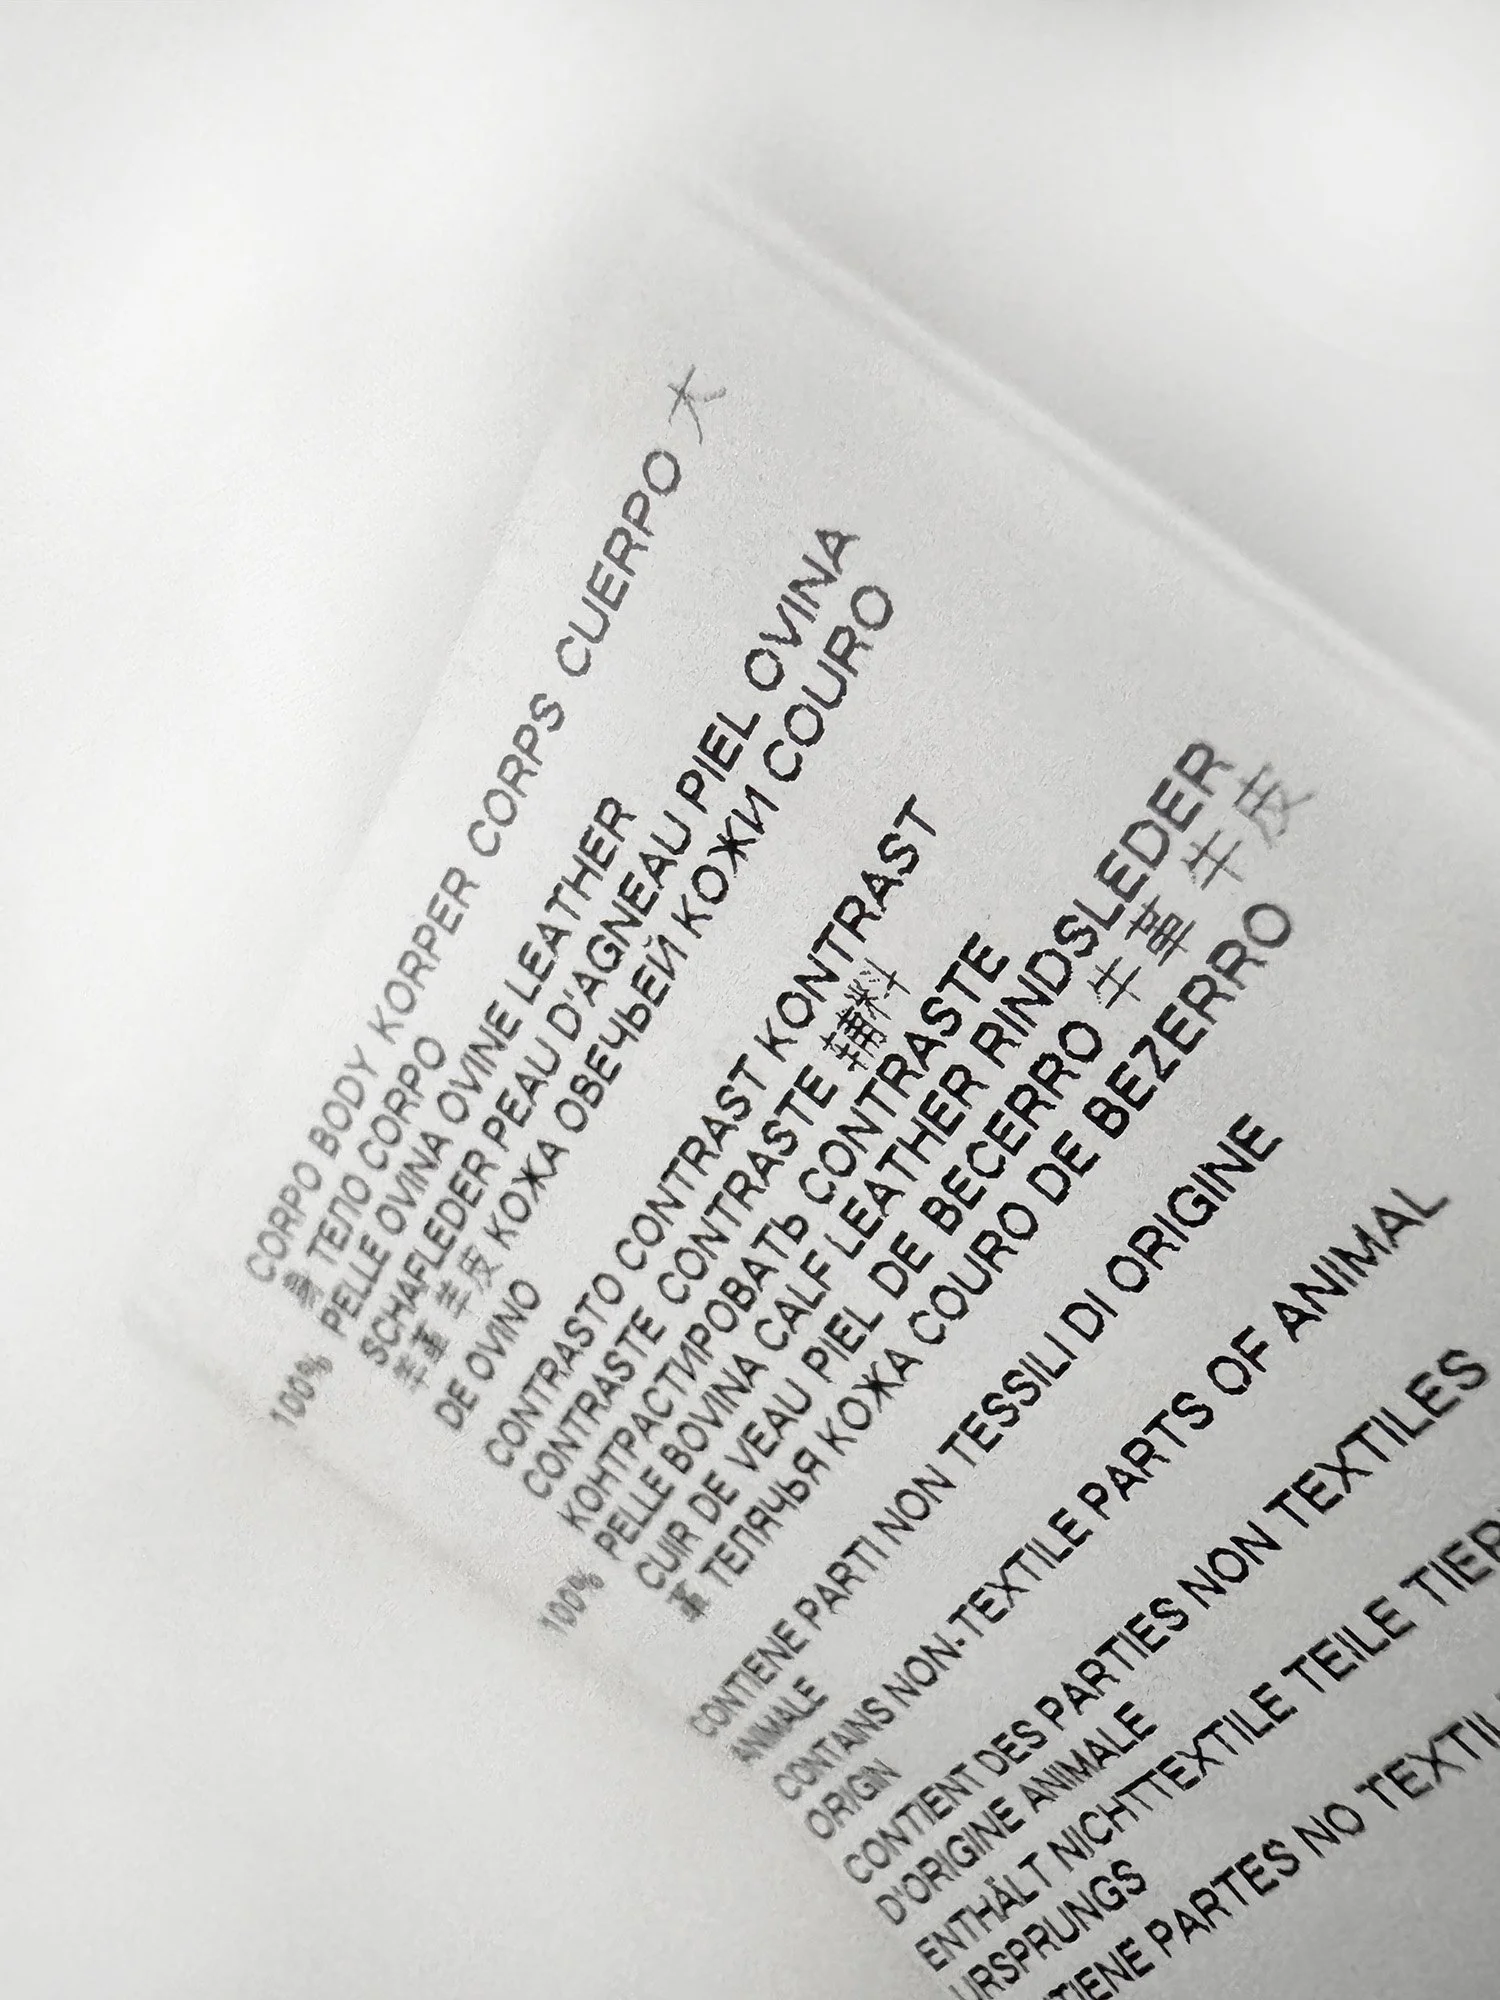 CORPO BODY KORPER CORPS CUERPO 大
ТЕЛО CORPO
100% PELLE OVINA OVINE LEATHER
SCHAFLEDER PEAU D'AGNEAU PIEL OVINA
羊革 羊皮 КОЖА ОВЕЧЬЕЙ КОЖИ COURO
DE OVINO
CONTRASTO CONTRAST KONTRAST
CONTRASTE CONTRASTE 辅料
КОНТРАСТИРОВАТЬ CONTRASTE
100% PELLE BOVINA CALF LEATHER RINDSLEDER
CUIR DE VEAU PIEL DE BECERRO 牛革 牛皮
革 ТЕЛЯЧЬЯ КОЖА COURO DE BEZERRO
CONTIENE PARTI NON TESSILI DI ORIGINE
ANIMALE
CONTAINS NON-TEXTILE PARTS OF ANIMAL
ORIGIN
CONTIENT DES PARTIES NON TEXTILES
D'ORIGINE ANIMALE
ENTHÄLT NICHTTEXTILE TEILE TIER
URSPRUNGS
TIENE PARTES NO TEXTIL